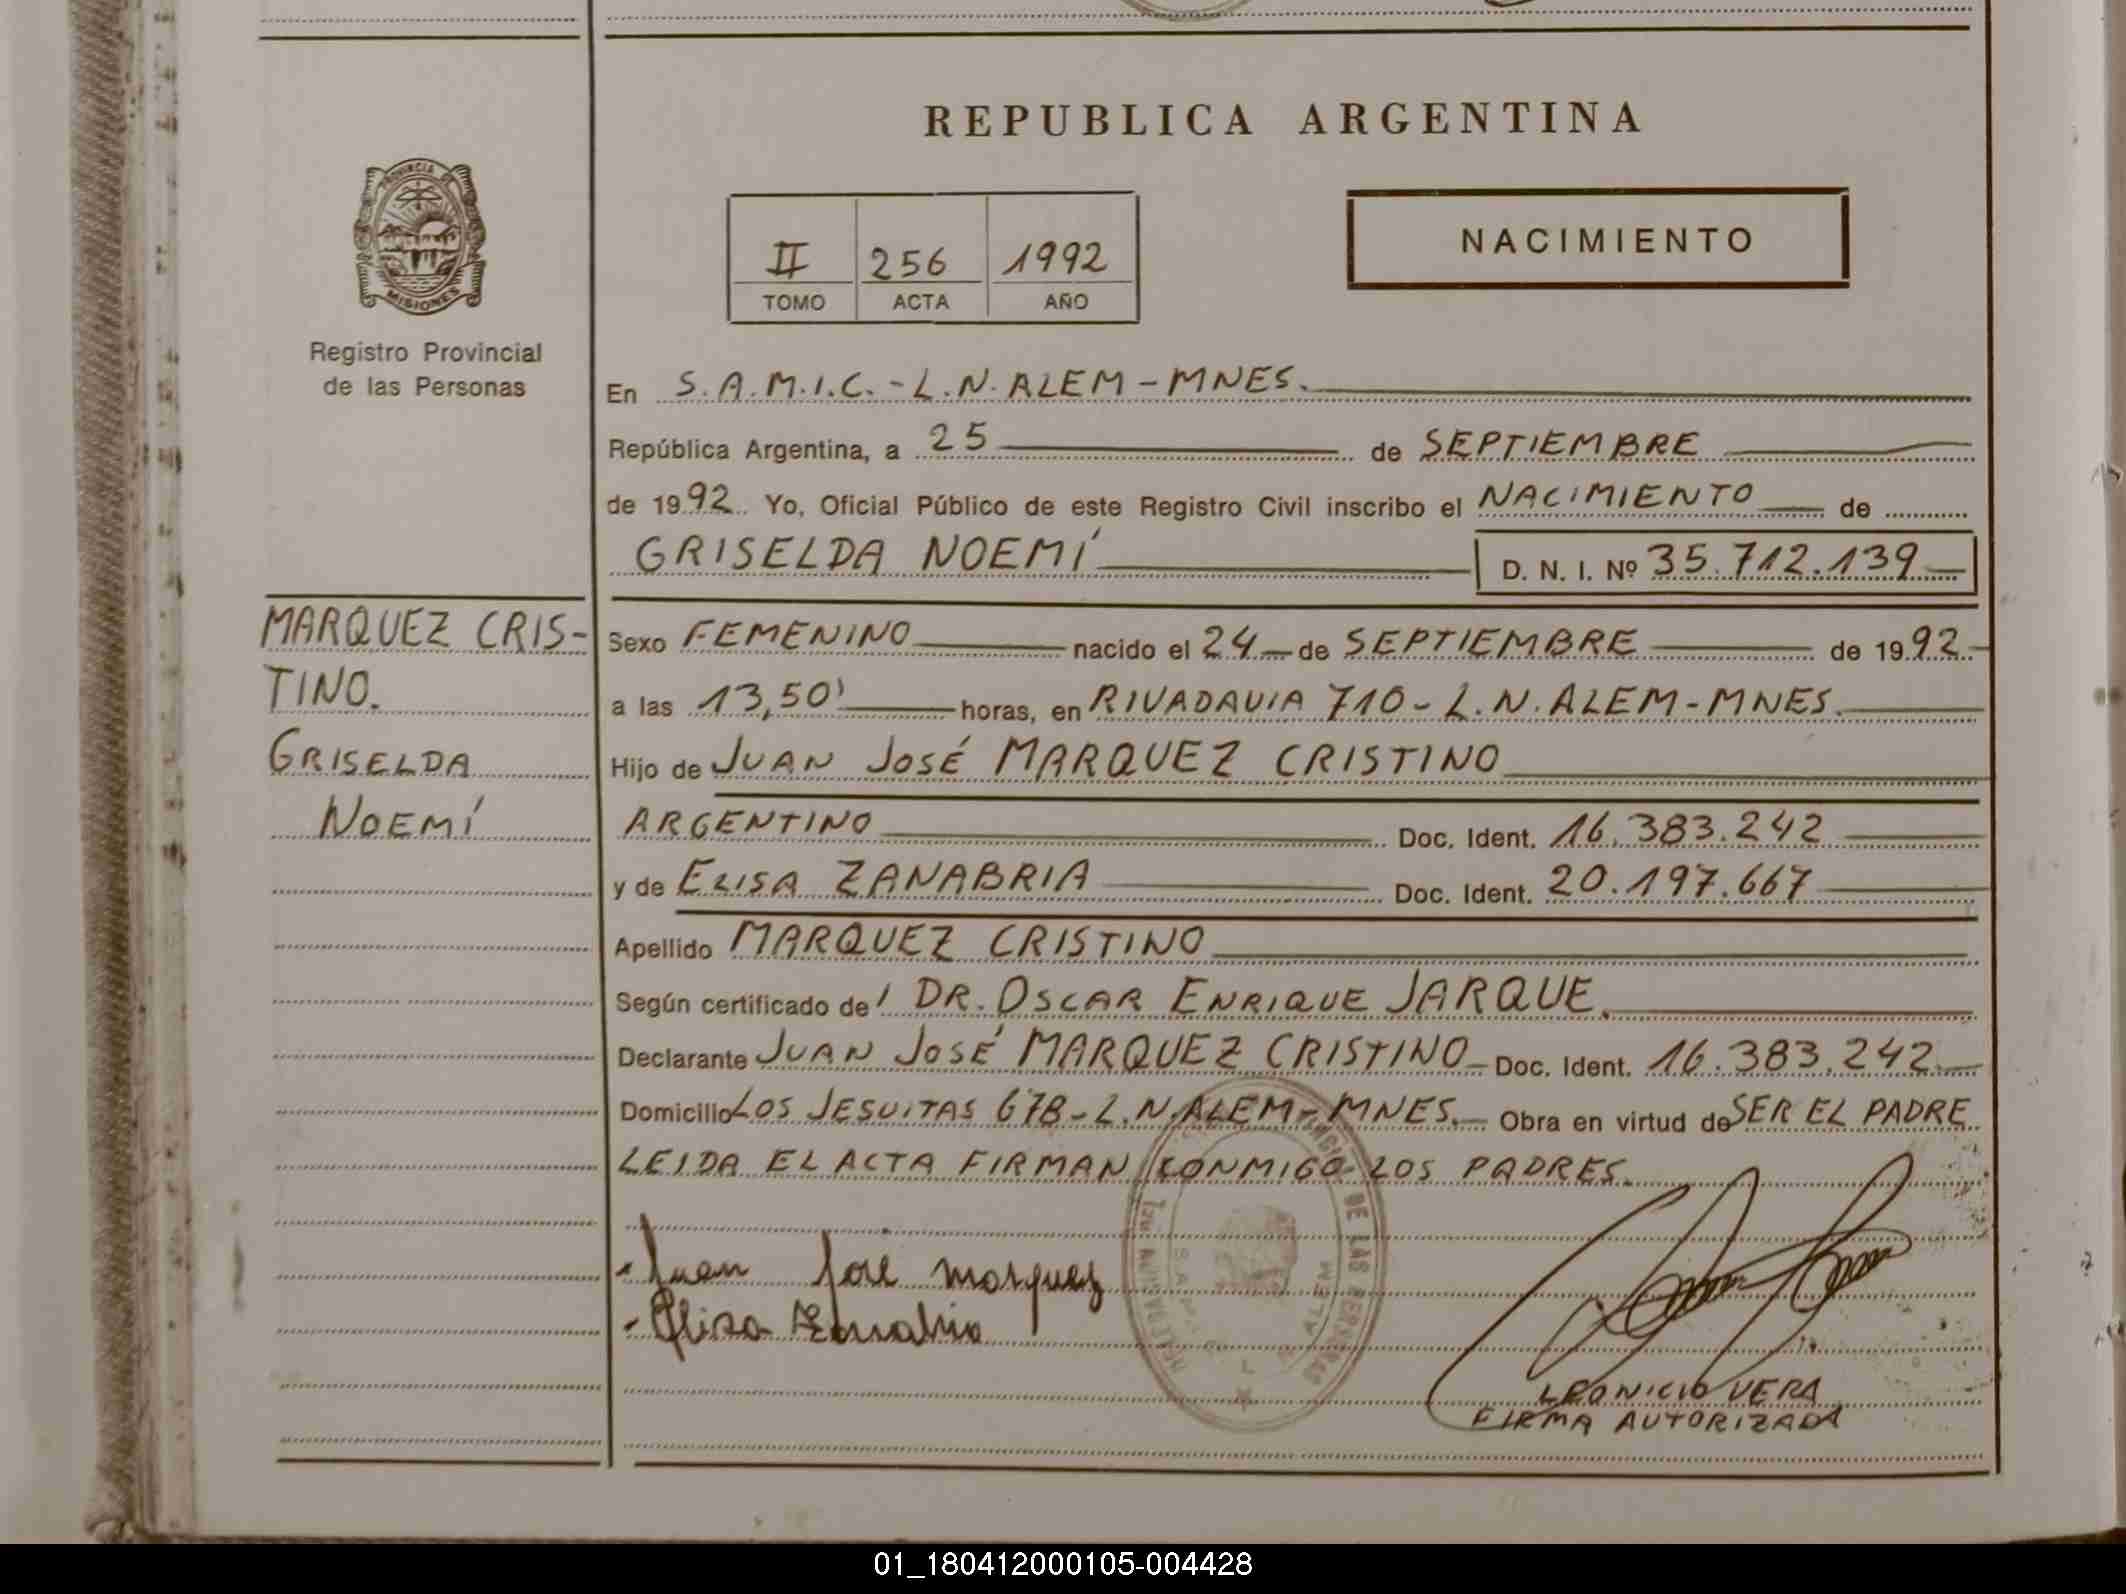 REPUBLICA ARGENTINA
PROVINCIA DE
MISIONES
Registro Provincial
de las Personas
II 256 1992
TOMO ACTA AÑO
NACIMIENTO
En S.A.M.I.C. - L.N. ALEM - MNES.
República Argentina, a 25 de SEPTIEMBRE
de 1992. Yo, Oficial Público de este Registro Civil inscribo el NACIMIENTO de
GRISELDA NOEMÍ D. N. I. Nº 35.712.139
MARQUEZ CRIS-
TINO.
GRISELDA
NOEMÍ
Sexo FEMENINO nacido el 24 de SEPTIEMBRE de 1992
a las 13,50' horas, en RIVADAVIA 710 - L.N. ALEM - MNES.
Hijo de JUAN JOSÉ MARQUEZ CRISTINO
ARGENTINO Doc. Ident. 16.383.242
y de ELISA ZANABRIA Doc. Ident. 20.197.667
Apellido MARQUEZ CRISTINO
Según certificado de / DR. OSCAR ENRIQUE JARQUE.
Declarante JUAN JOSÉ MARQUEZ CRISTINO Doc. Ident. 16.383.242
Domicilio LOS JESUITAS 678 - L.N. ALEM - MNES. Obra en virtud de SER EL PADRE
LEIDA EL ACTA FIRMAN CONMIGO LOS PADRES.
Juan José Marquez
Elisa Zanabria
DE LAS PERSONAS
ALEM
LEONICIO VERA
FIRMA AUTORIZADA
01_180412000105-004428